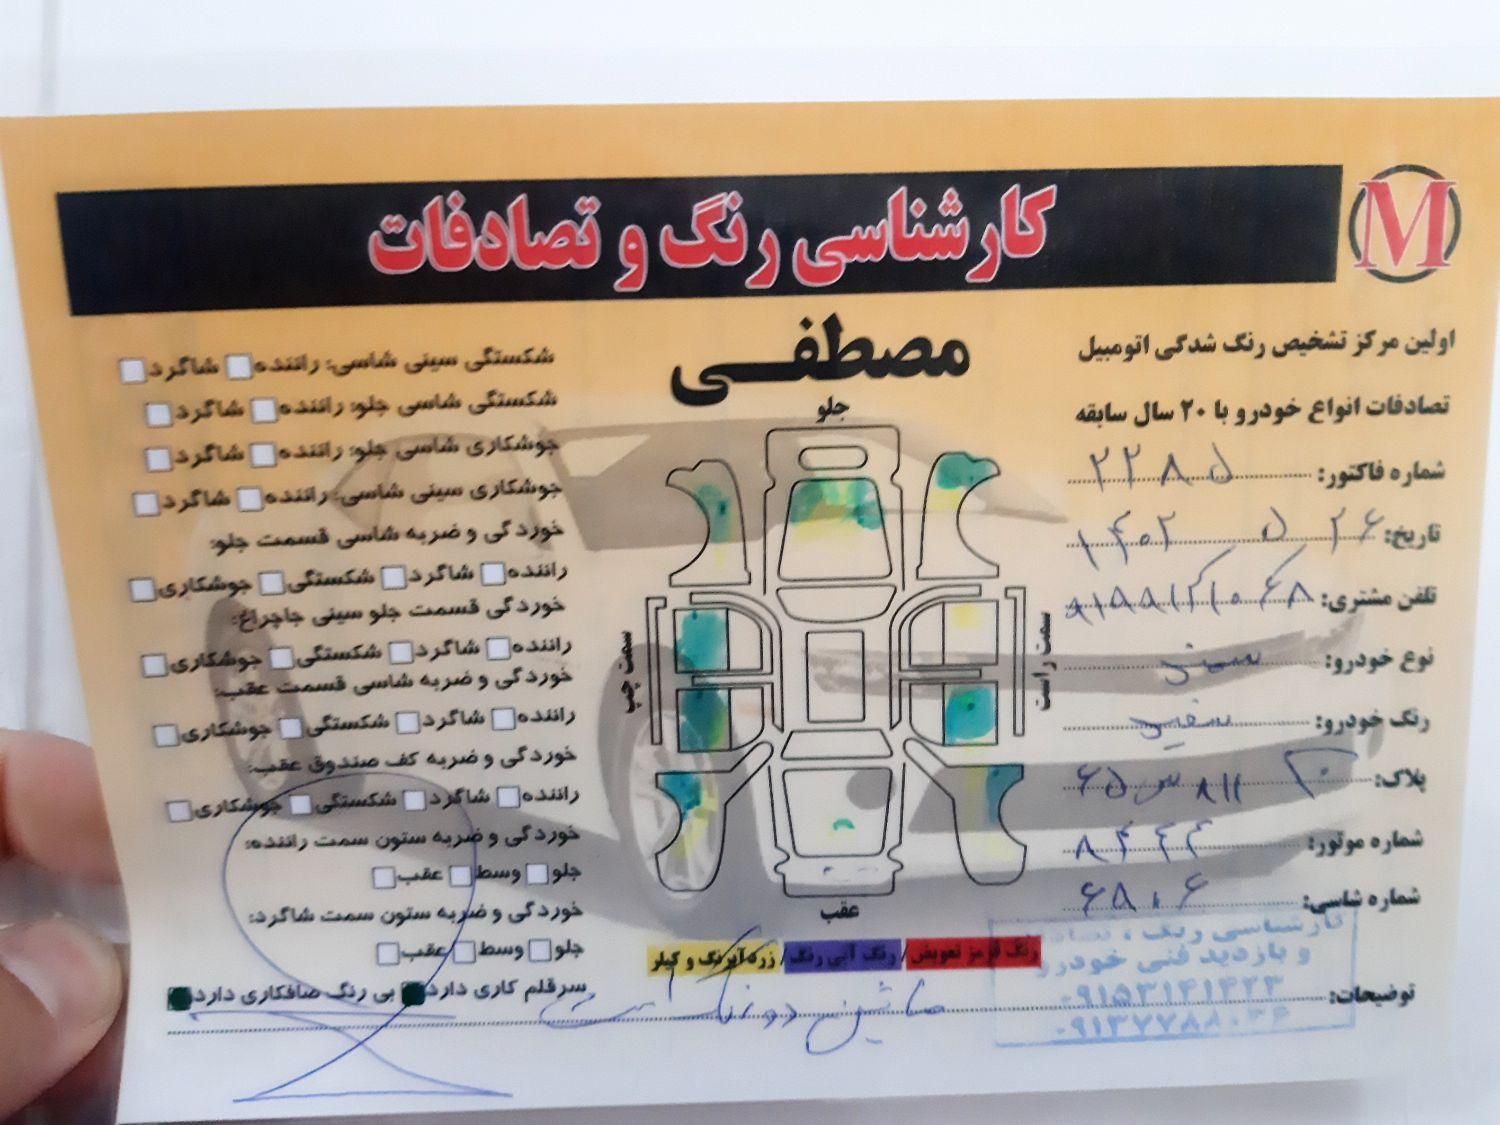 کارشناسی رنگ و تصادفات
M
مصطفی
اولین مرکز تشخیص رنگ شدگی اتومبیل
تصادفات انواع خودرو با ۲۰ سال سابقه
شماره فاکتور: ۲۲۸۵
تاریخ: ۲۶ ۵ ۱۴۰۲
تلفن مشتری:
نوع خودرو: سمند
رنگ خودرو: سفید
پلاک:
شماره موتور: ۸۴۴۴
شماره شاسی: ۶۵۸۰۶
جلو
سمت چپ
سمت راست
عقب
رنگ قرمز تعویض/ رنگ آبی رنگ/ زرد آبرنگ و گیلر
شکستگی سینی شاسی: راننده شاگرد
شکستگی شاسی جلو: راننده شاگرد
جوشکاری شاسی جلو: راننده شاگرد
جوشکاری سینی شاسی: راننده شاگرد
خوردگی و ضربه شاسی قسمت جلو:
راننده شاگرد شکستگی جوشکاری
خوردگی قسمت جلو سینی جاچراغ:
راننده شاگرد شکستگی جوشکاری
خوردگی و ضربه شاسی قسمت عقب:
راننده شاگرد شکستگی جوشکاری
خوردگی و ضربه کف صندوق عقب:
راننده شاگرد شکستگی جوشکاری
خوردگی و ضربه ستون سمت راننده:
جلو وسط عقب
خوردگی و ضربه ستون سمت شاگرد:
جلو وسط عقب
سرقلم کاری دارد بی رنگ صافکاری دارد
توضیحات: ماشین دو رنگ است
کارشناسی رنگ ، تصادف
و بازدید فنی خودرو
۰۹۱۵۳۱۴۱۴۲۳
۰۹۱۳۷۷۸۸۰۳۶